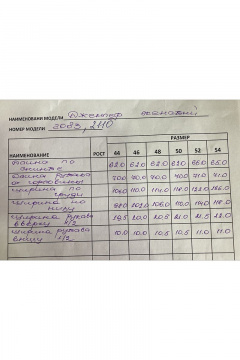 НАИМЕНОВАНИ МОДЕЛИ Джемпер женский
НОМЕР МОДЕЛИ 3083, 2110
РАЗМЕР
НАИМЕНОВАНИЕ РОСТ 44 46 48 50 52 54
Длина по
спинке 62.0 62.0 62.0 63.0 65.0 65.0
Длина рукава
от горловины 70.0 70.0 70.0 70.0 71.0 71.0
Ширина по
груди 106.0 110.0 114.0 118.0 122.0 126.0
Ширина по
низу 102.0 106.0 110.0 114.0 118.0
Ширина рукава
вверху 1/2 19.5 20.0 20.5 21.0 21.5 22.0
Ширина рукава
внизу 1/2 10.0 10.5 10.5 11.0 11.0